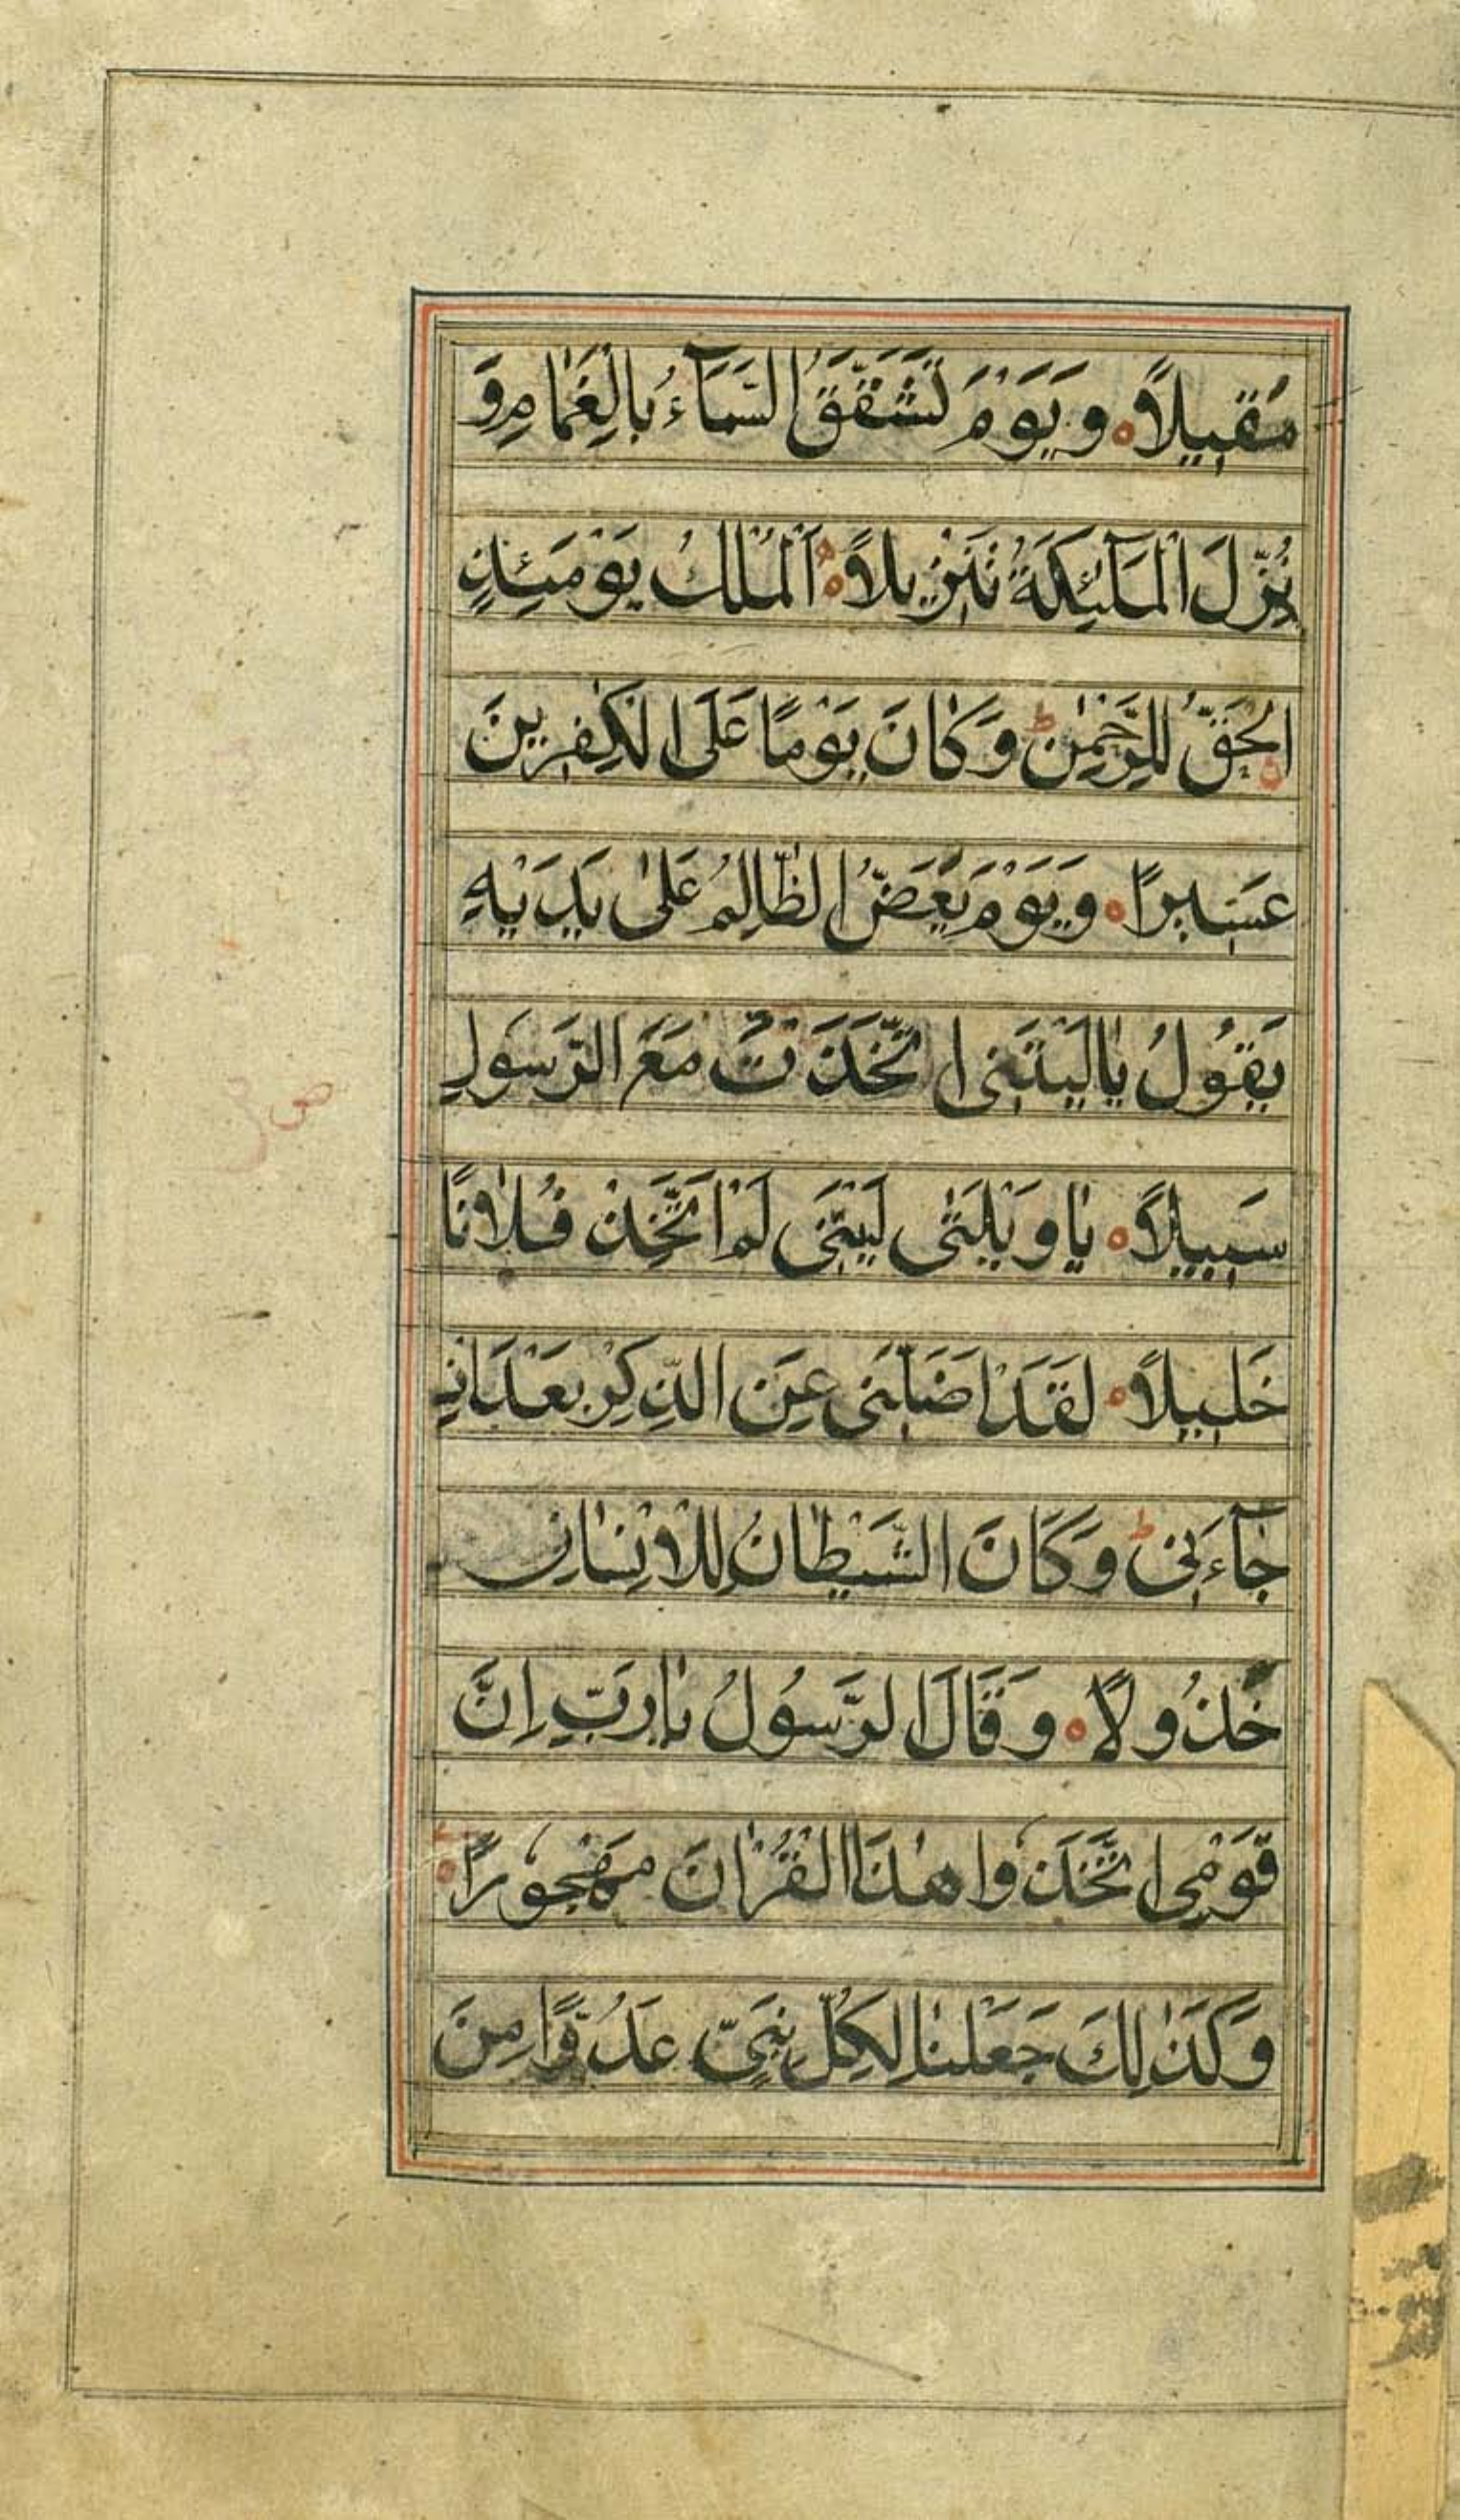 مَقِيلًاه وَيَوْمَ تَشَقَّقُ السَّمَآءُ بِالْغَمَامِ وَ
نُزِّلَ الْمَلٰٓئِكَةُ تَنْزِيلًاه اَلْمُلْكُ يَوْمَئِذٍ
الْحَقُّ لِلرَّحْمٰنِ ط وَكَانَ يَوْمًا عَلَى الْكٰفِرِينَ
عَسِيرًاه وَيَوْمَ يَعَضُّ الظَّالِمُ عَلٰى يَدَيْهِ
يَقُولُ يَالَيْتَنِى اتَّخَذْتُ مَعَ الرَّسُولِ
سَبِيلًاه يَاوَيْلَتٰى لَيْتَنِى لَمْ اَتَّخِذْ فُلَانًا
خَلِيلًاه لَقَدْ اَضَلَّنِى عَنِ الذِّكْرِ بَعْدَ اِذْ
جَآءَنِى ط وَكَانَ الشَّيْطَانُ لِلْاِنْسَانِ
خَذُولًاه وَقَالَ الرَّسُولُ يَارَبِّ اِنَّ
قَوْمِى اتَّخَذُوا هٰذَا الْقُرْاٰنَ مَهْجُورًاه
وَكَذٰلِكَ جَعَلْنَا لِكُلِّ نَبِىٍّ عَدُوًّا مِنَ